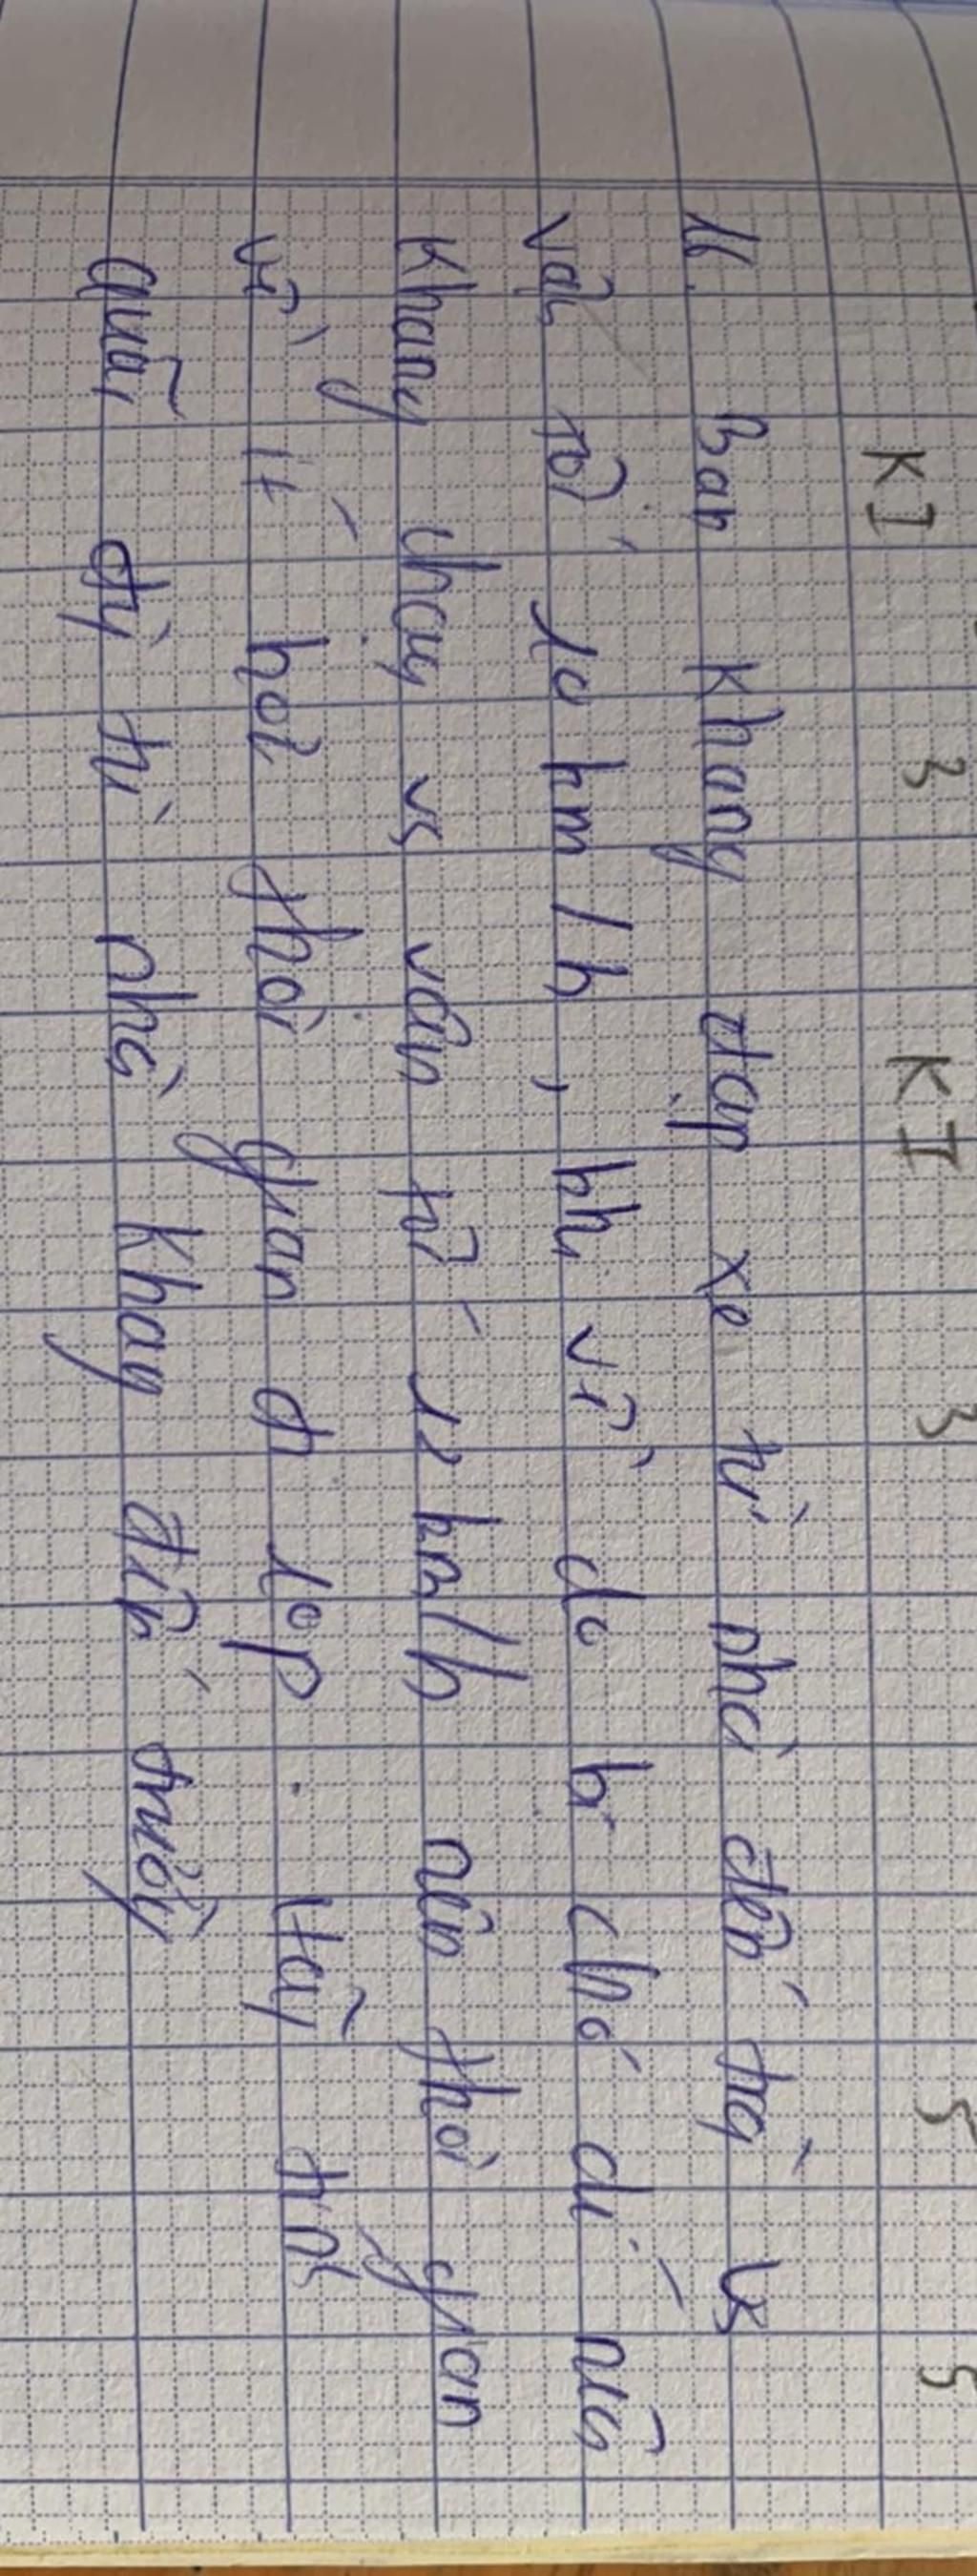 KI 3 KI 3 5 5
16. Bạn Khang đạp xe từ nhà đến trg vs
vận tốc 10 km/h, khi về do bị chó dí nên
Khang chạy vs vận tốc 12 km/h nên thời gian
về ít hơn thời gian đi 10p. Hãy tính
quãg đg từ nhà Khang đến trường